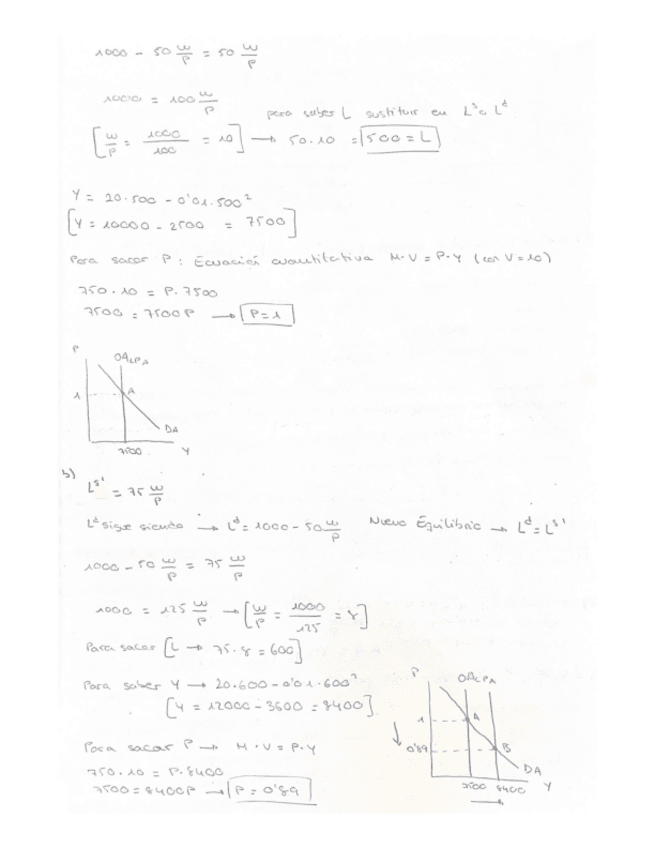 1000 - 50 w/P = 50 w/P
1000 = 100 w/P
para saber L sustituir en Lˢ o Lᵈ
[w/P = 1000/100 = 10] → 50·10 = 500 = L
Y = 20·500 - 0'01·500²
[Y = 10000 - 2500 = 7500]
Para sacar P: Ecuación cuantitativa M·V = P·Y (con V=10)
750·10 = P·7500
7500 = 7500P → P=1
P
OALPA
1
A
DA
7500
Y
b)
Lˢ' = 75 w/P
Lᵈ sigue siendo → Lᵈ = 1000 - 50 w/P Nuevo Equilibrio → Lᵈ = Lˢ'
1000 - 50 w/P = 75 w/P
1000 = 125 w/P → [w/P = 1000/125 = 8]
Para sacar [L → 75·8 = 600]
Para saber Y → 20·600 - 0'01·600²
[Y = 12000 - 3600 = 8400]
Para sacar P → M·V = P·Y
750·10 = P·8400
7500 = 8400P → P = 0'89
P
OALPA
1
A
0'89
B
DA
7500 8400
Y